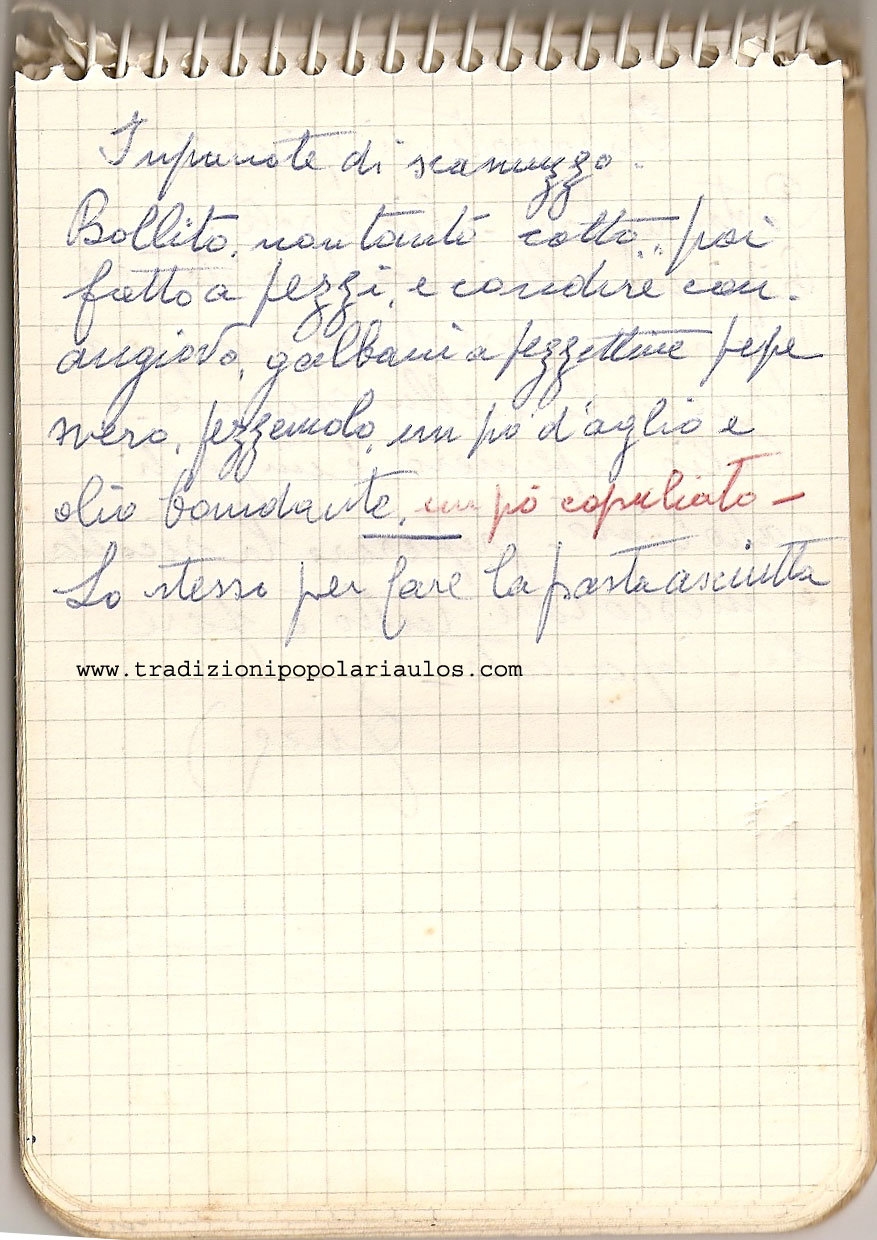 Inpanate di scamuzzo.
Bollito, non tanto cotto, poi
fatto a pezzi, e condire con.
angiova, galbani a pezzettine pepe
nero, pezzemolo, un pò d'aglio e
olio bondante, un pò capuliato -
Lo stesso per fare la pasta asciutta
www.tradizionipopolariaulos.com